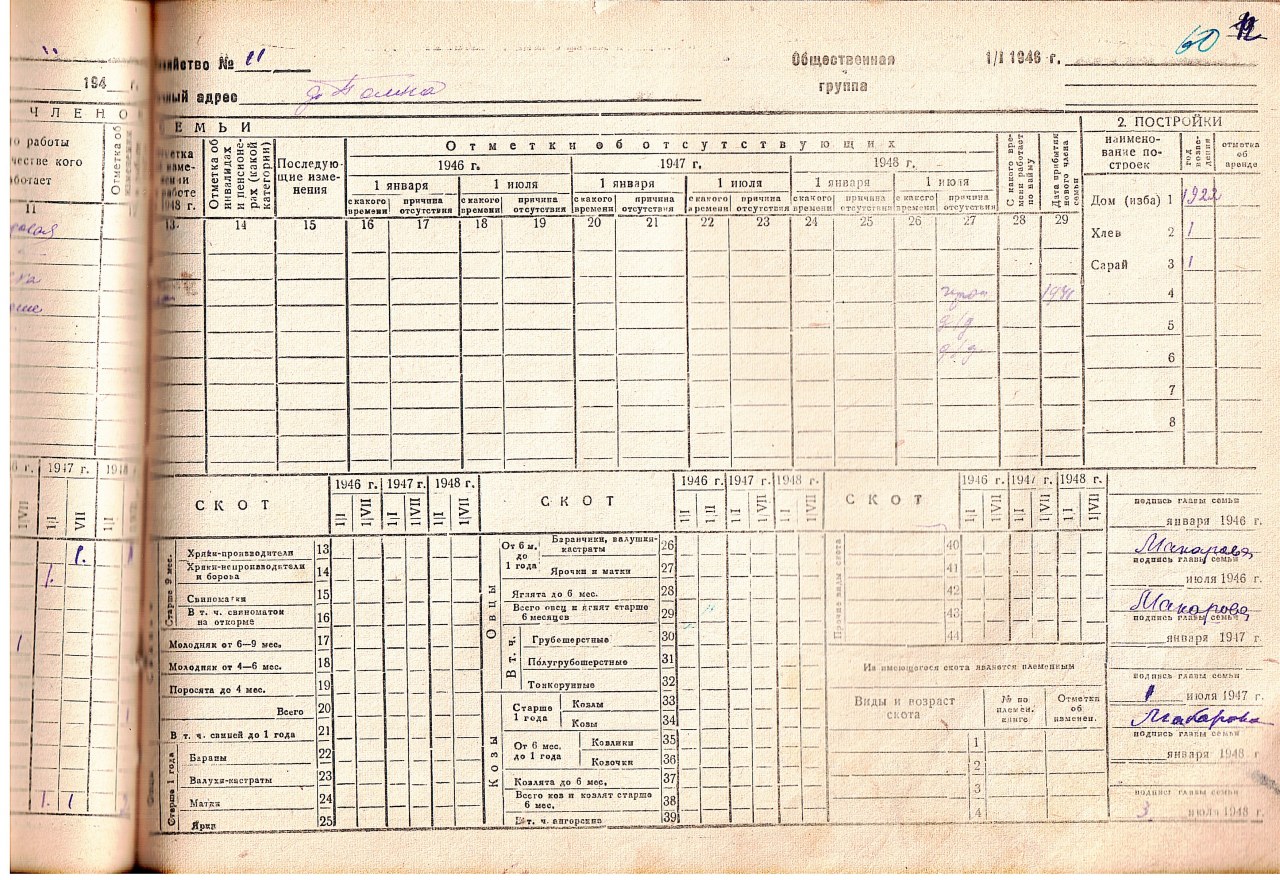 60 12
йство № 11
Общественная группа 1/I 1946 г.
ный адрес
194 г.
ЧЛЕНО
ЕМЬИ
2. ПОСТРОЙКИ
о работы
честве кого
ботает
Отметка об
11
13.
Отметка об инвалидах и пенсионерах (какой категории)
14
Последующие изменения
15
Отметки об отсутствующих
1946 г. 1947 г. 1948 г.
1 января 1 июля 1 января 1 июля 1 января 1 июля
с какого времени причина отсутствия с какого времени причина отсутствия с какого времени причина отсутствия с какого времени причина отсутствия с какого времени причина отсутствия с какого времени причина отсутствия
16 17 18 19 20 21 22 23 24 25 26 27
С какого времени работает по найму
28
Дата прибытия нового члена семьи
29
наименование построек год возведения отметка об аренде
Дом (изба) 1 1922
Хлев 2 1
Сарай 3 1
4
5
6
7
8
д/д
д/д
г. 1947 г. 1948
1|VII 1|I VII 1|I
СКОТ 1946 г. 1947 г. 1948 г.
1|I 1|VII 1|I 1|VII 1|I 1|VII
Старше 9 мес.
Хряки-производители 13
Хряки-непроизводители и борова 14
Свиноматки 15
В т. ч. свиноматок на откорме 16
Молодняк от 6—9 мес. 17
Молодняк от 4—6 мес. 18
Поросята до 4 мес. 19
Всего 20
В т. ч. свиней до 1 года 21
Старше 1 года
Бараны 22
Валухи-кастраты 23
Матки 24
Ярки 25
СКОТ 1946 г. 1947 г. 1948 г.
1|I 1|VII 1|I 1|VII
Овцы
От 6 м. до 1 года
Баранчики, валушки-кастраты 26
Ярочки и матки 27
Ягнята до 6 мес. 28
Всего овец и ягнят старше 6 месяцев 29
В т. ч.
Грубошерстные 30
Полугрубошерстные 31
Тонкорунные 32
Козы
Старше 1 года
Козлы 33
Козы 34
От 6 мес. до 1 года
Козлики 35
Козочки 36
Козлята до 6 мес. 37
Всего коз и козлят старше 6 мес. 38
В т. ч. ангорских 39
СКОТ 1946 г. 1947 г. 1948 г.
1|I 1|VII 1|I 1|VII 1|I 1|VII
Прочие виды скота
40
41
42
43
44
Из имеющегося скота является племенным
Виды и возраст скота № по племен. книге Отметка об изменен.
1
2
3
4
подпись главы семьи
января 1946 г.
Макарова
подпись главы семьи
июля 1946 г.
Макарова
подпись главы семьи
января 1947 г.
подпись главы семьи
1 июля 1947 г.
Макарова
подпись главы семьи
января 1948 г.
подпись главы семьи
3 июля 1948 г.